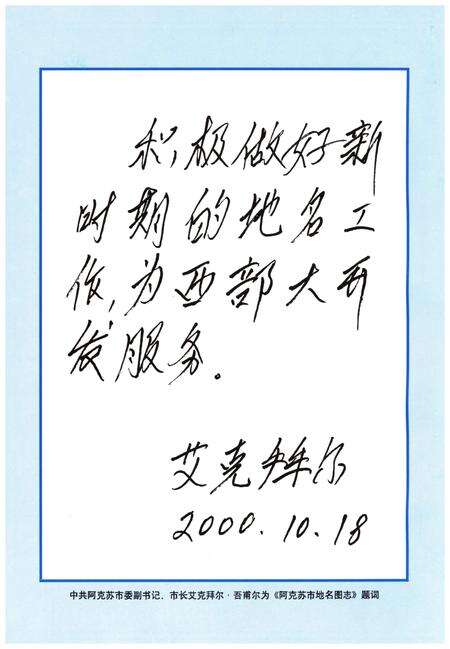 积极做好新
时期的地名工
作,为西部大开
发服务。
艾克拜尔
2000.10.18
中共阿克苏市委副书记、市长艾克拜尔·吾甫尔为《阿克苏市地名图志》题词